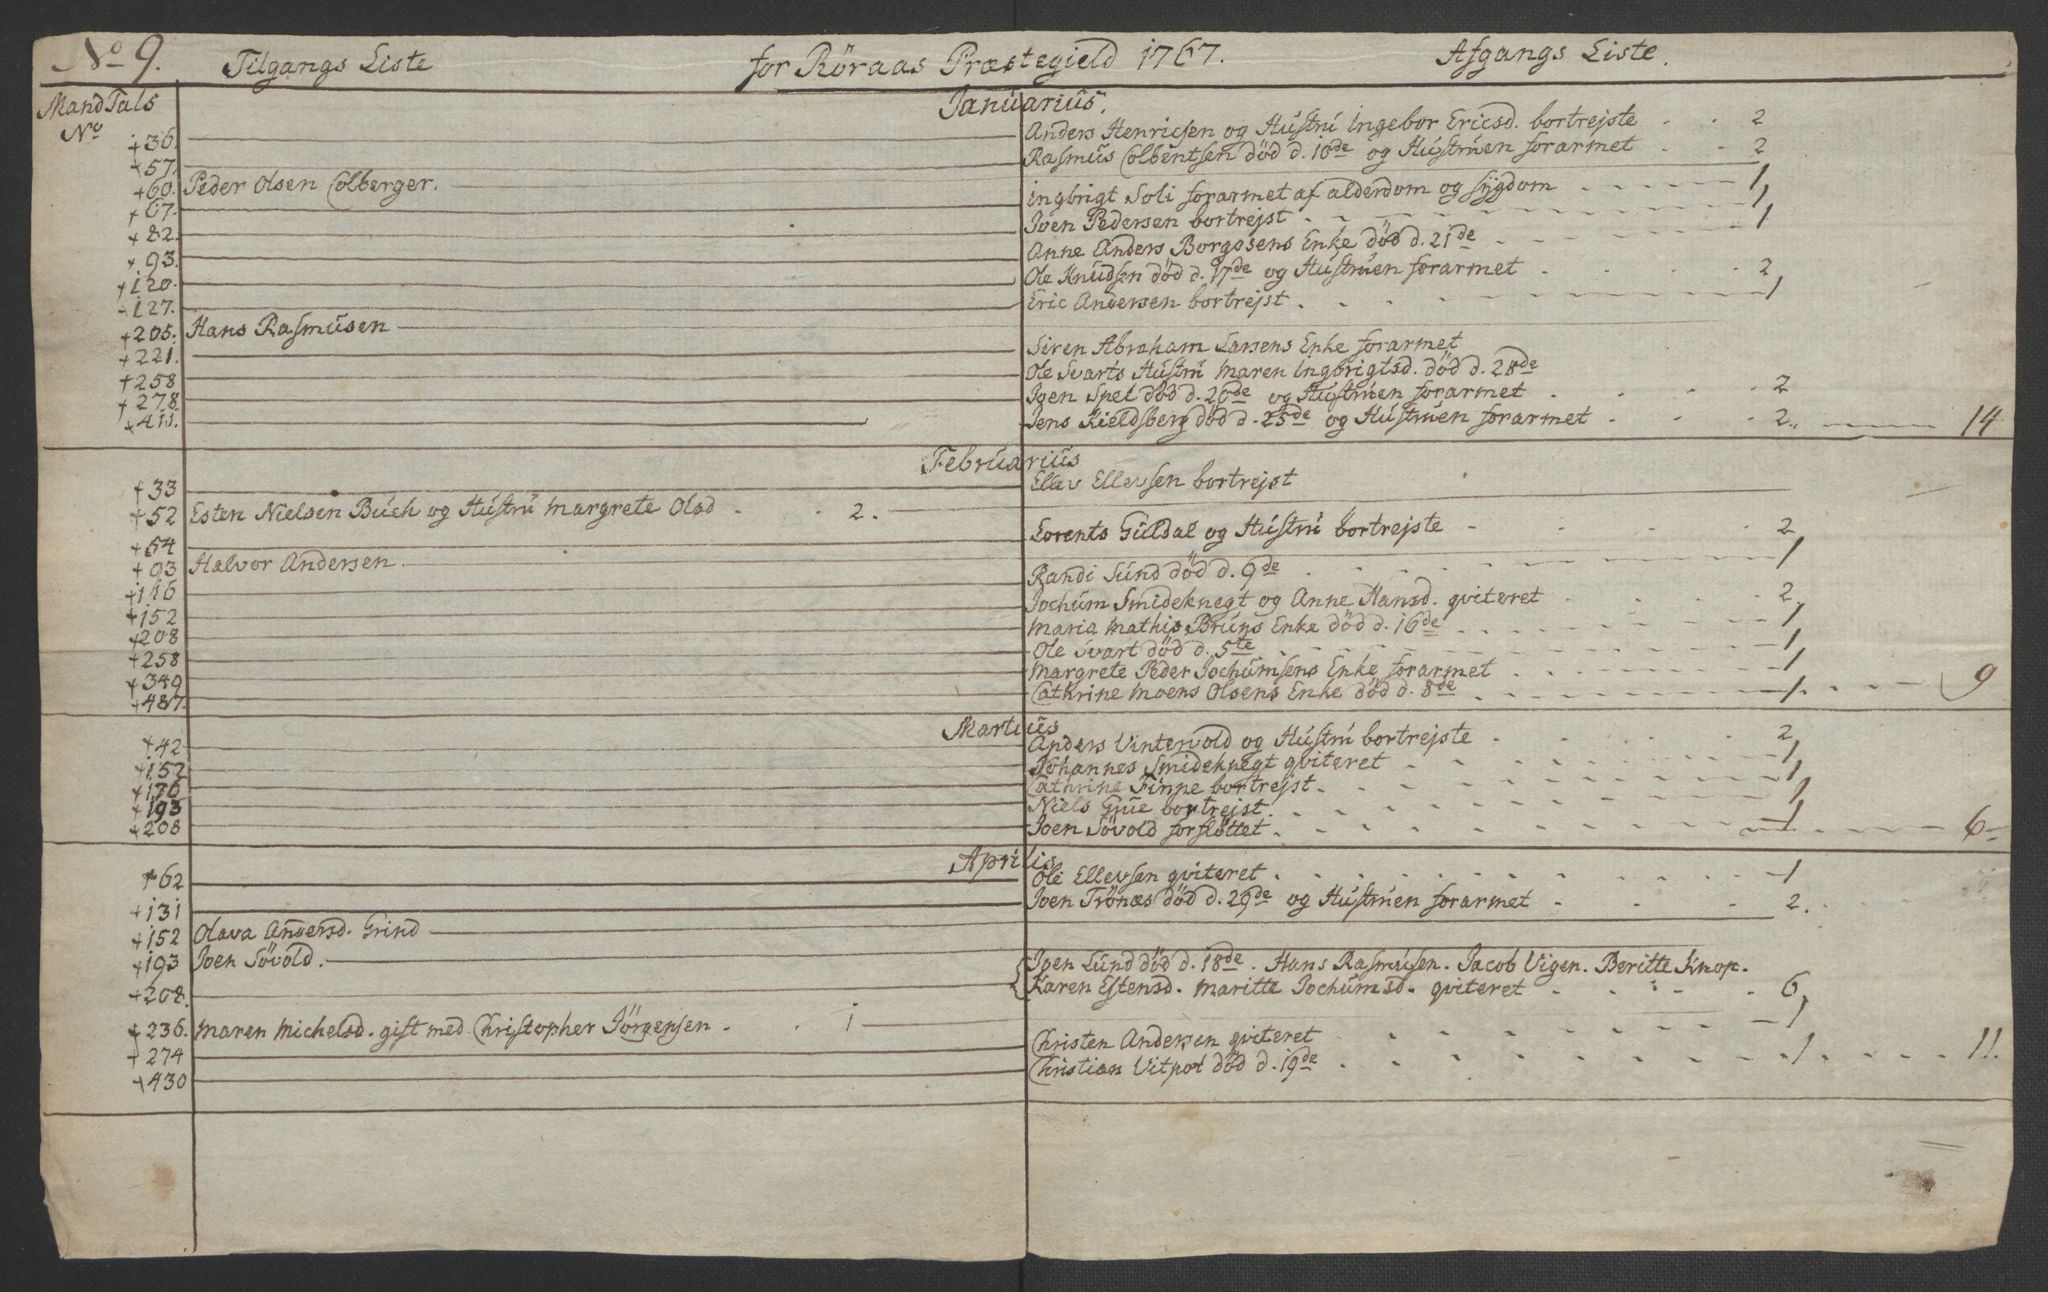 No 9. Tilgangs Liste for Röraas Præstegield 1767. Afgangs Liste.
MandTals No
Januarius.
+36. Anders Henricsen og Hustru Ingebor Ericsd. bortrejste 2
+57. Rasmus Colbentsen död d. 10de og Hustruen forarmet 2
+60. Peder Olsen Colberger.
+67. Ingbrigt Soli forarmet af alderdom og sygdom 1
+82. Joen Pedersen bortrejst 1
+93. Anne Anders Borgosens Enke död d. 21de 1
+120. Ole Knudsen död d. 17de og Hustruen forarmet 2
+127. Eric Andersen bortrejst 1
+205. Hans Rasmusen
+221. Siren Abraham Larsens Enke forarmet
+258 Ole Svarts Hustru Maren Ingbrigtsd. död d. 28de
+278. Joen Spel död d. 26de og Hustruen forarmet 2
+411. Jens Kieldsberg död d. 25de og Hustruen forarmet 2 14
Februarius
+33 Ellev Ellevsen bortrejst
+52 Esten Nielsen Buch og Hustru Margrete Olsd 2.
+54 Lorents Guldal og Hustru bortrejste 2
+93 Halvor Andersen.
+116 Randi Sund död d. 9de 1
+152 Jochum Smideknegt og Anne Hansd. qviteret 2
+208 Maria Mathis Bruns Enke död d. 16de 1
+258 Ole Svart död d. 5te 1
+349 Margrete Peder Jochumsens Enke forarmet 1
+487. Cathrine Moens Olsens Enke död d. 8de 1 9
Martius
+42 Anders Vintervold og Hustru bortrejste 2
+152 Johannes Smideknegt qviteret 1
+170 Cathrine Finne bortrejst 1
+193 Niels Gue bortrejst 1
+208 Joen Sövold forflöttet 1 6
Aprilis
+62 Ole Ellevsen qviteret 1
+131 Joen Trönæs död d. 29de og Hustruen forarmet 2.
+152 Olava Andersd. Grind
+193 Joen Sövold. Joen Lund död d. 18de. Hans Rasmusen. Jacob Vigen. Beritte Knop.
+208. Karen Estensd. Maritte Jochumsd. qviteret 6
+236. Maren Michelsd. gift med Christopher Jörgensen 1
+274 Christen Andersen qviteret 1
+430 Christian Vitpot död d. 19de 1 11.